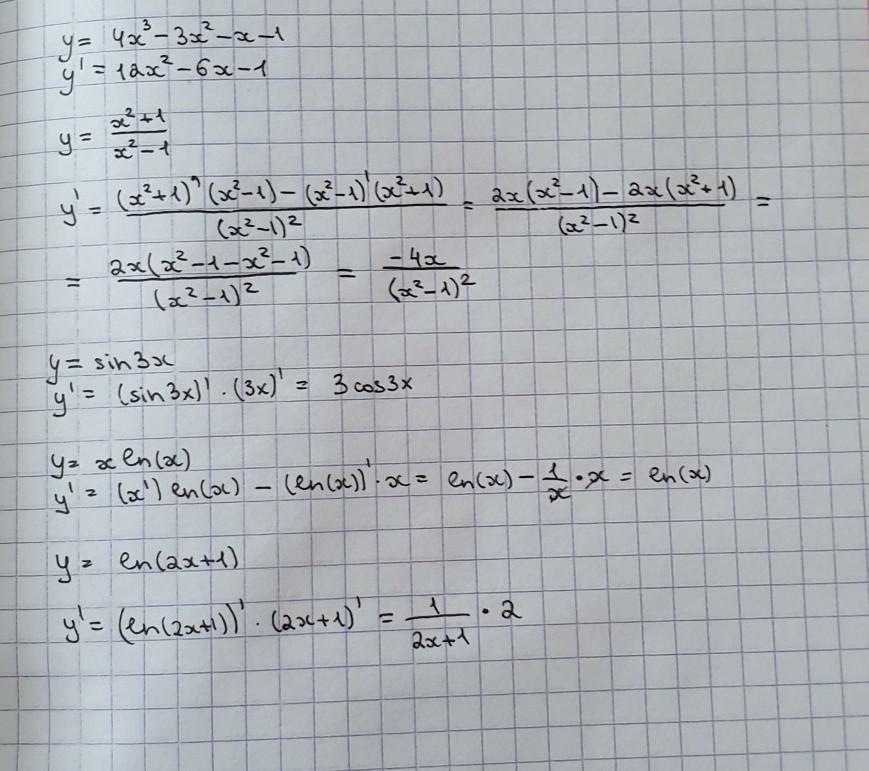 y = 4x³ - 3x² - x - 1
y' = 12x² - 6x - 1
y = (x² + 1)/(x² - 1)
y' = ((x²+1)'(x²-1) - (x²-1)'(x²+1))/(x²-1)² = (2x(x²-1) - 2x(x²+1))/(x²-1)² =
= (2x(x²-1-x²-1))/(x²-1)² = (-4x)/(x²-1)²
y = sin3x
y' = (sin3x)' · (3x)' = 3cos3x
y = x ln(x)
y' = (x') ln(x) - (ln(x))' · x = ln(x) - 1/x · x = ln(x)
y = ln(2x+1)
y' = (ln(2x+1))' · (2x+1)' = 1/(2x+1) · 2